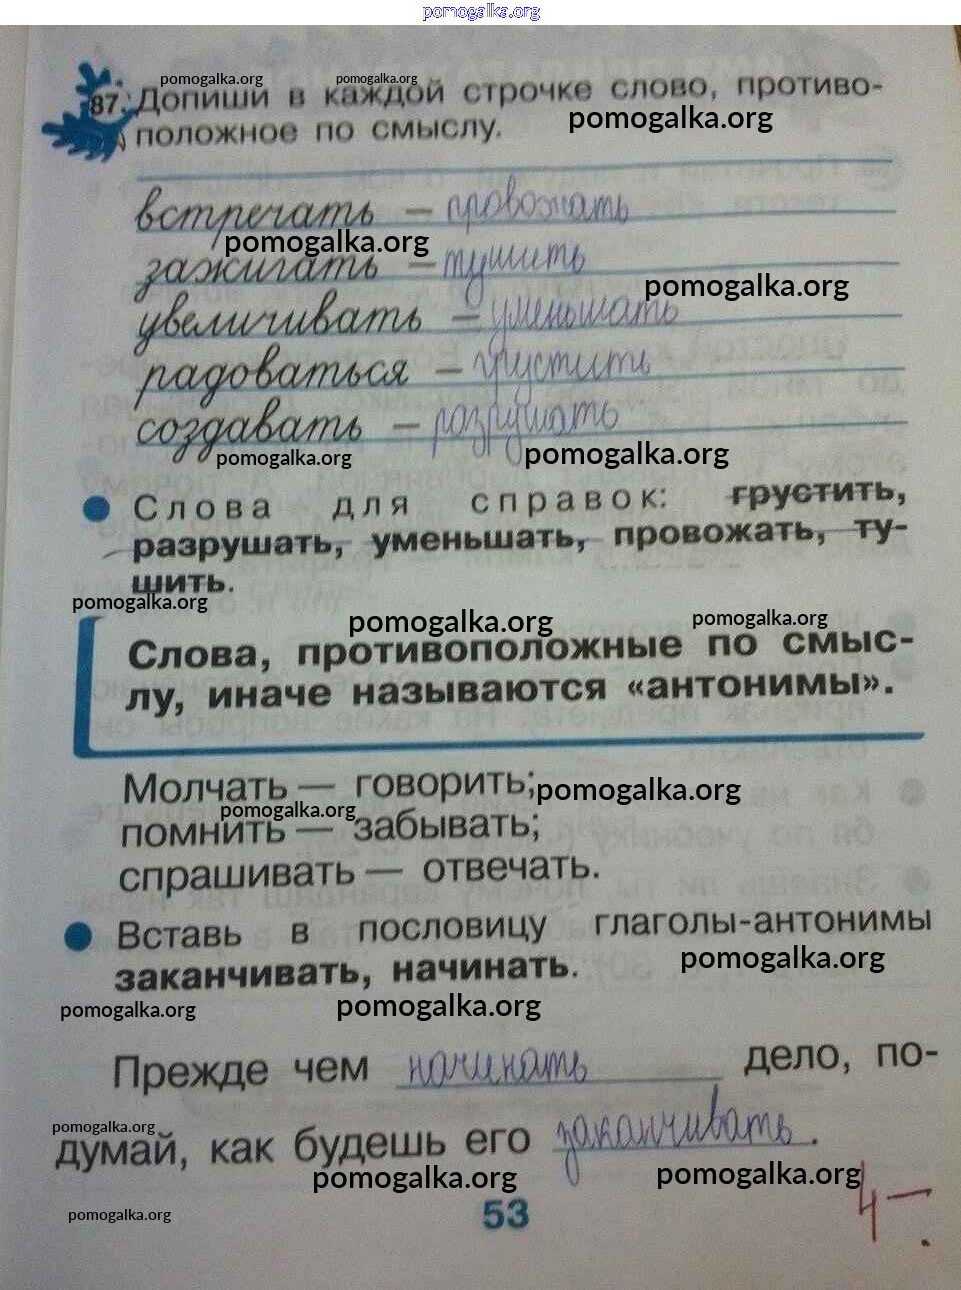 pomogalka.org
pomogalka.org pomogalka.org
87. Допиши в каждой строчке слово, противо-
pomogalka.org
положное по смыслу.
встречать – провожать
pomogalka.org
зажигать – тушить
pomogalka.org
увеличивать – уменьшать
радоваться – грустить
создавать – разрушать
pomogalka.org pomogalka.org
Слова для справок: грустить,
разрушать, уменьшать, провожать, ту-
шить.
pomogalka.org
pomogalka.org pomogalka.org
Слова, противоположные по смыс-
лу, иначе называются «антонимы».
Молчать — говорить;
pomogalka.org
pomogalka.org
помнить — забывать;
спрашивать — отвечать.
Вставь в пословицу глаголы-антонимы
pomogalka.org
заканчивать, начинать.
pomogalka.org pomogalka.org
Прежде чем начинать дело, по-
pomogalka.org
думай, как будешь его заканчивать.
pomogalka.org pomogalka.org
4–.
pomogalka.org
53